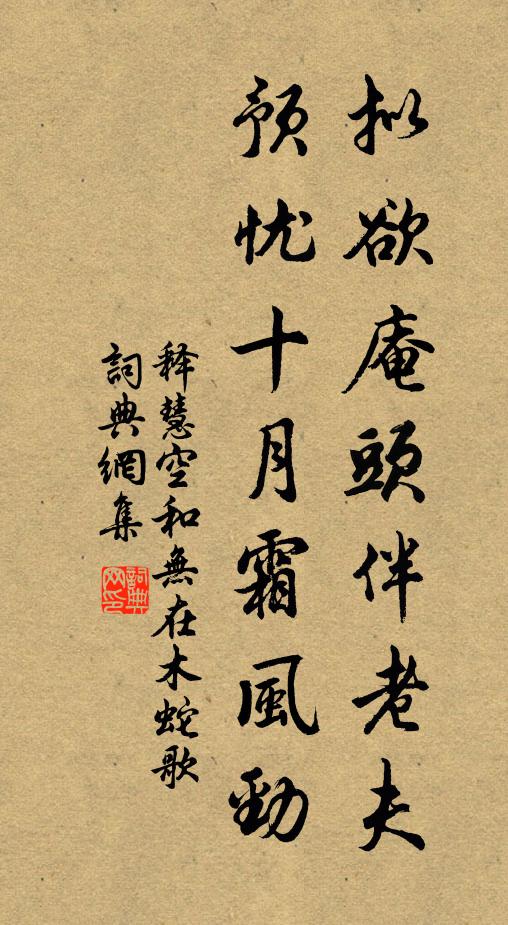 拟欲庵頭伴老夫
预忧十月霜風勁
释慧空和無在木蛇歌
詞典網集
詞典网印